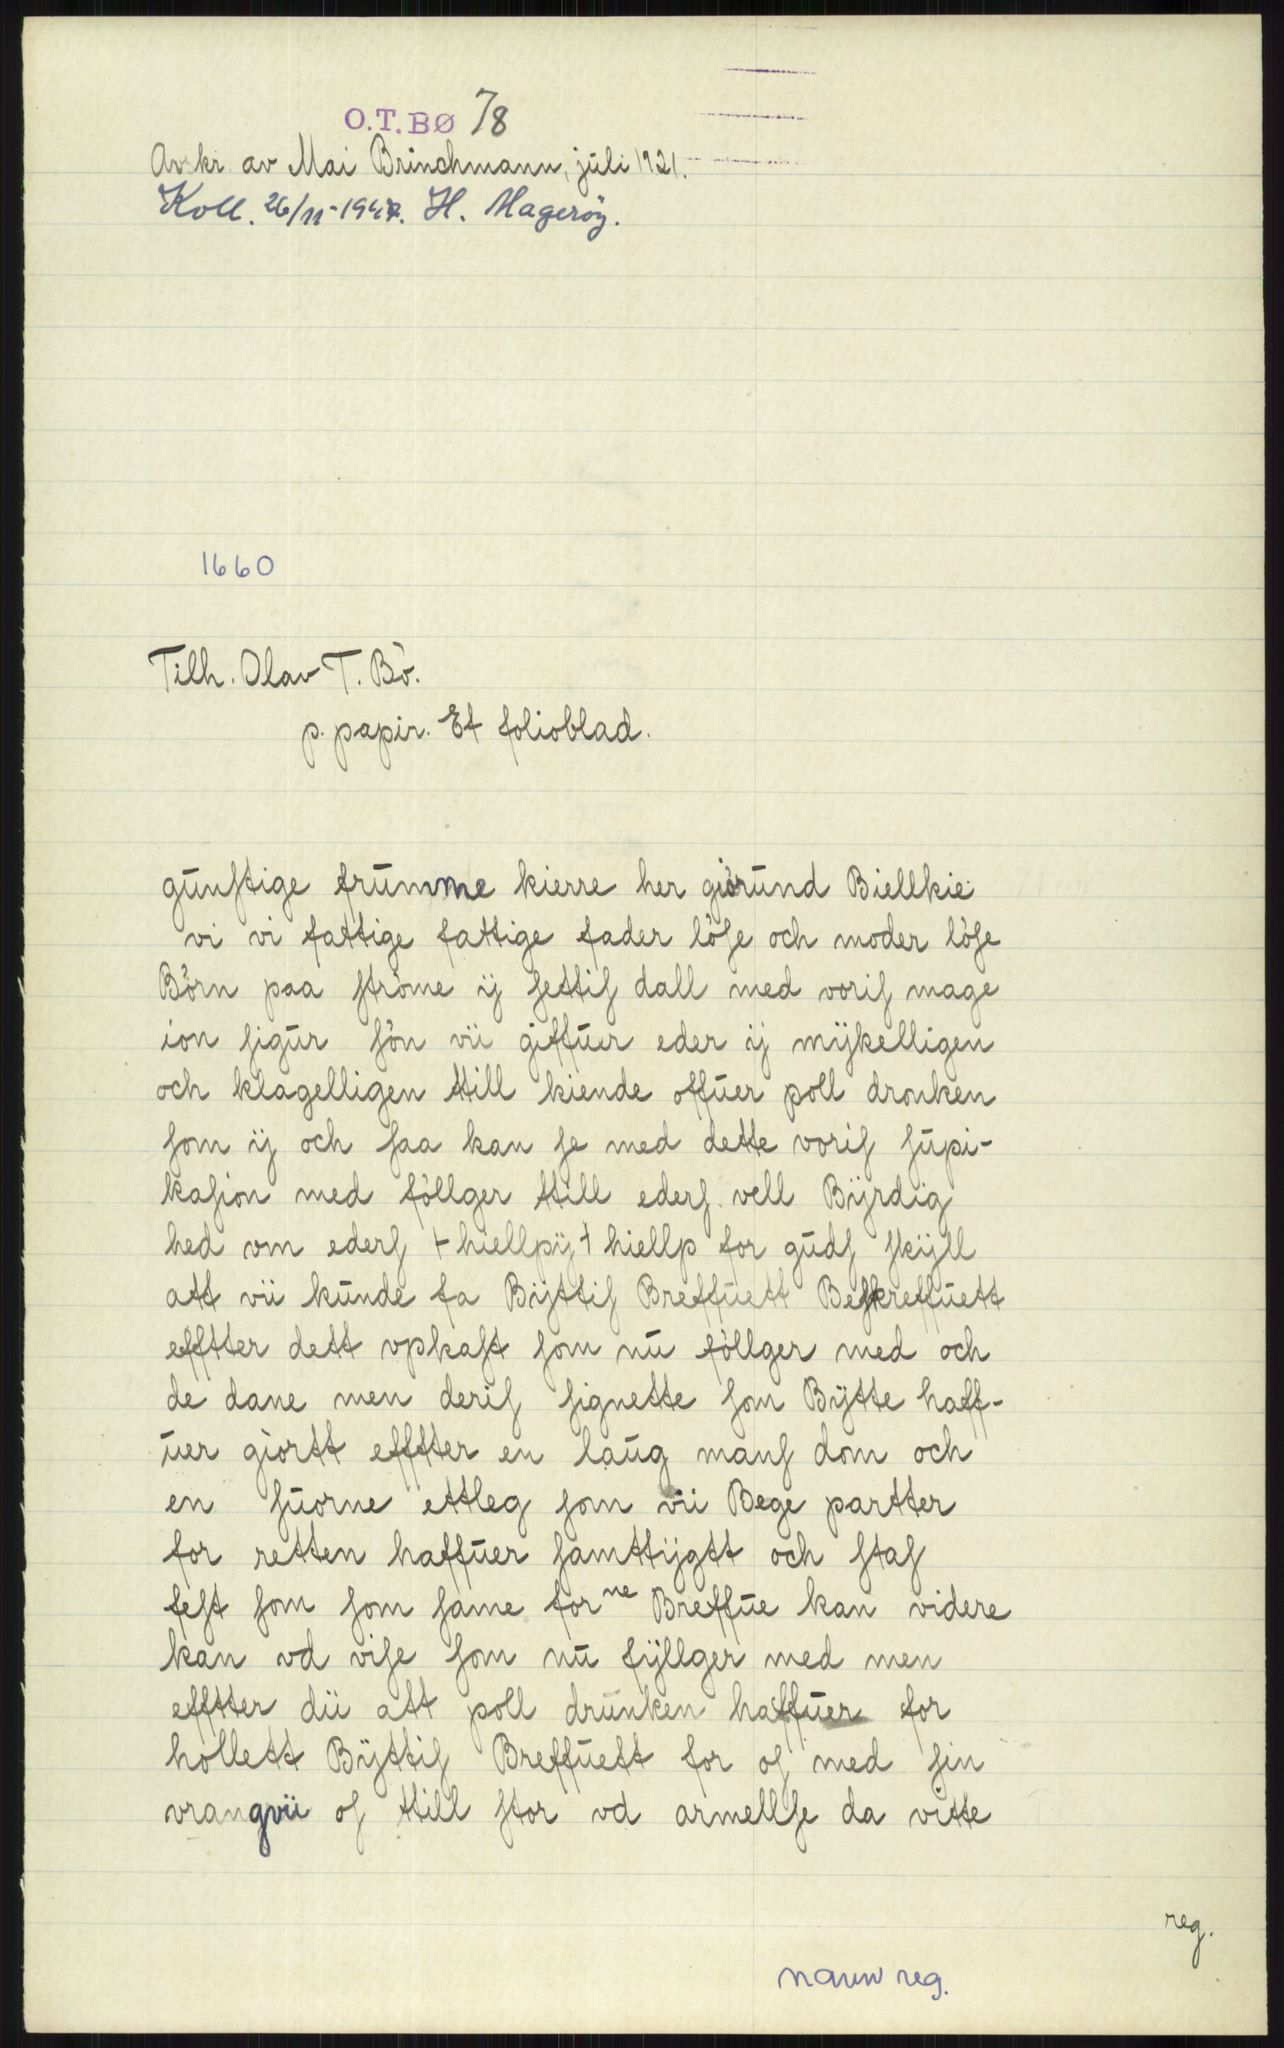 O.T.BØ 78
Avskr. av Mai Brinchmann, juli 1921.
Koll. 26/11-1947. H. Magerøy.
1660
Tilh. Olav T. Bö.
p. papir. Et folioblad.
gunſtige frumme kierre her giörund Biellkie
vi vi fattige fattige fader löſe och moder löſe
Börn paa ſtröme ij ſettiſ dall med voriſ mage
ion ſigur ſön vii giffuer eder ij mykelligen
och klagelligen ttill kiende offuer poll dronken
ſom ij och ſaa kan ſe med dette voriſ ſupi-
kaſion med föllger ttill ederſ vell Byrdig
hed om ederſ + hiellpij + hiellp for gudſ ſkyll
att vii kunde fa Byttiſ Breffuett Beſkreffuett
efftter dett opkaſt ſom nu föllger med och
de dane men deriſ ſignette ſom Bytte haff-
uer giortt efftter en laug manſ dom och
en ſuorne ettleg ſom vii Bege partter
for retten haffuer ſamttygtt och ſtaſ
feſt ſom ſom ſame forne Breffue kan videre
kan vd viſe ſom nu fyllger med men
efftter dii att poll drunken haffuer for
hollett Byttiſ Breffuett for oſ med ſin
vrangvii oſ ttill ſtor vd armellſe da vitte
reg.
navn reg.